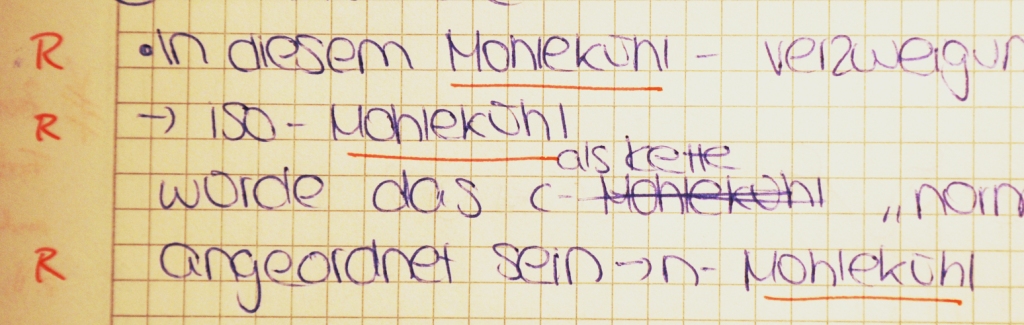 R •In diesem Mohlekühl - verzweigun
R → iso- Mohlekühl
als Kette
würde das C- Mohlekühl „norm
R angeordnet sein → n- Mohlekühl